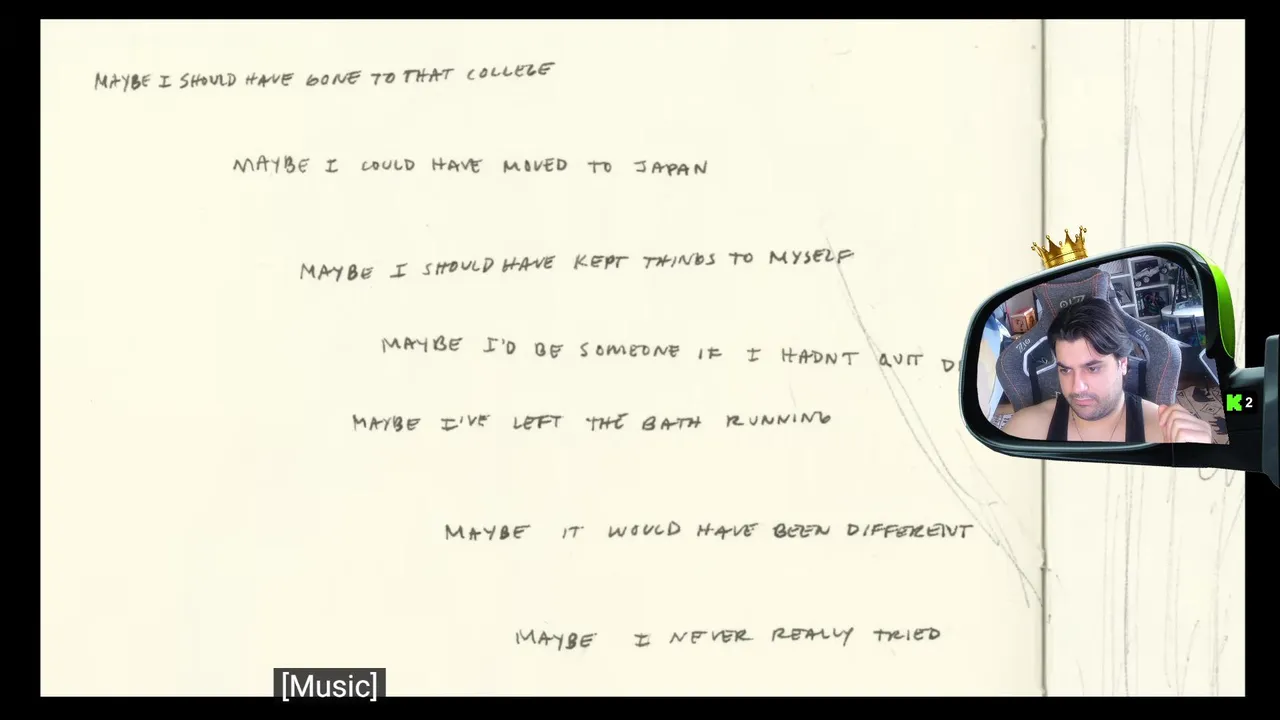 MAYBE I SHOULD HAVE GONE TO THAT COLLEGE
MAYBE I COULD HAVE MOVED TO JAPAN
MAYBE I SHOULD HAVE KEPT THINGS TO MYSELF
MAYBE I'D BE SOMEONE IF I HADNT QUIT
MAYBE I'VE LEFT THE BATH RUNNING
MAYBE IT WOULD HAVE BEEN DIFFERENT
MAYBE I NEVER REALLY TRIED
[Music]
K 2